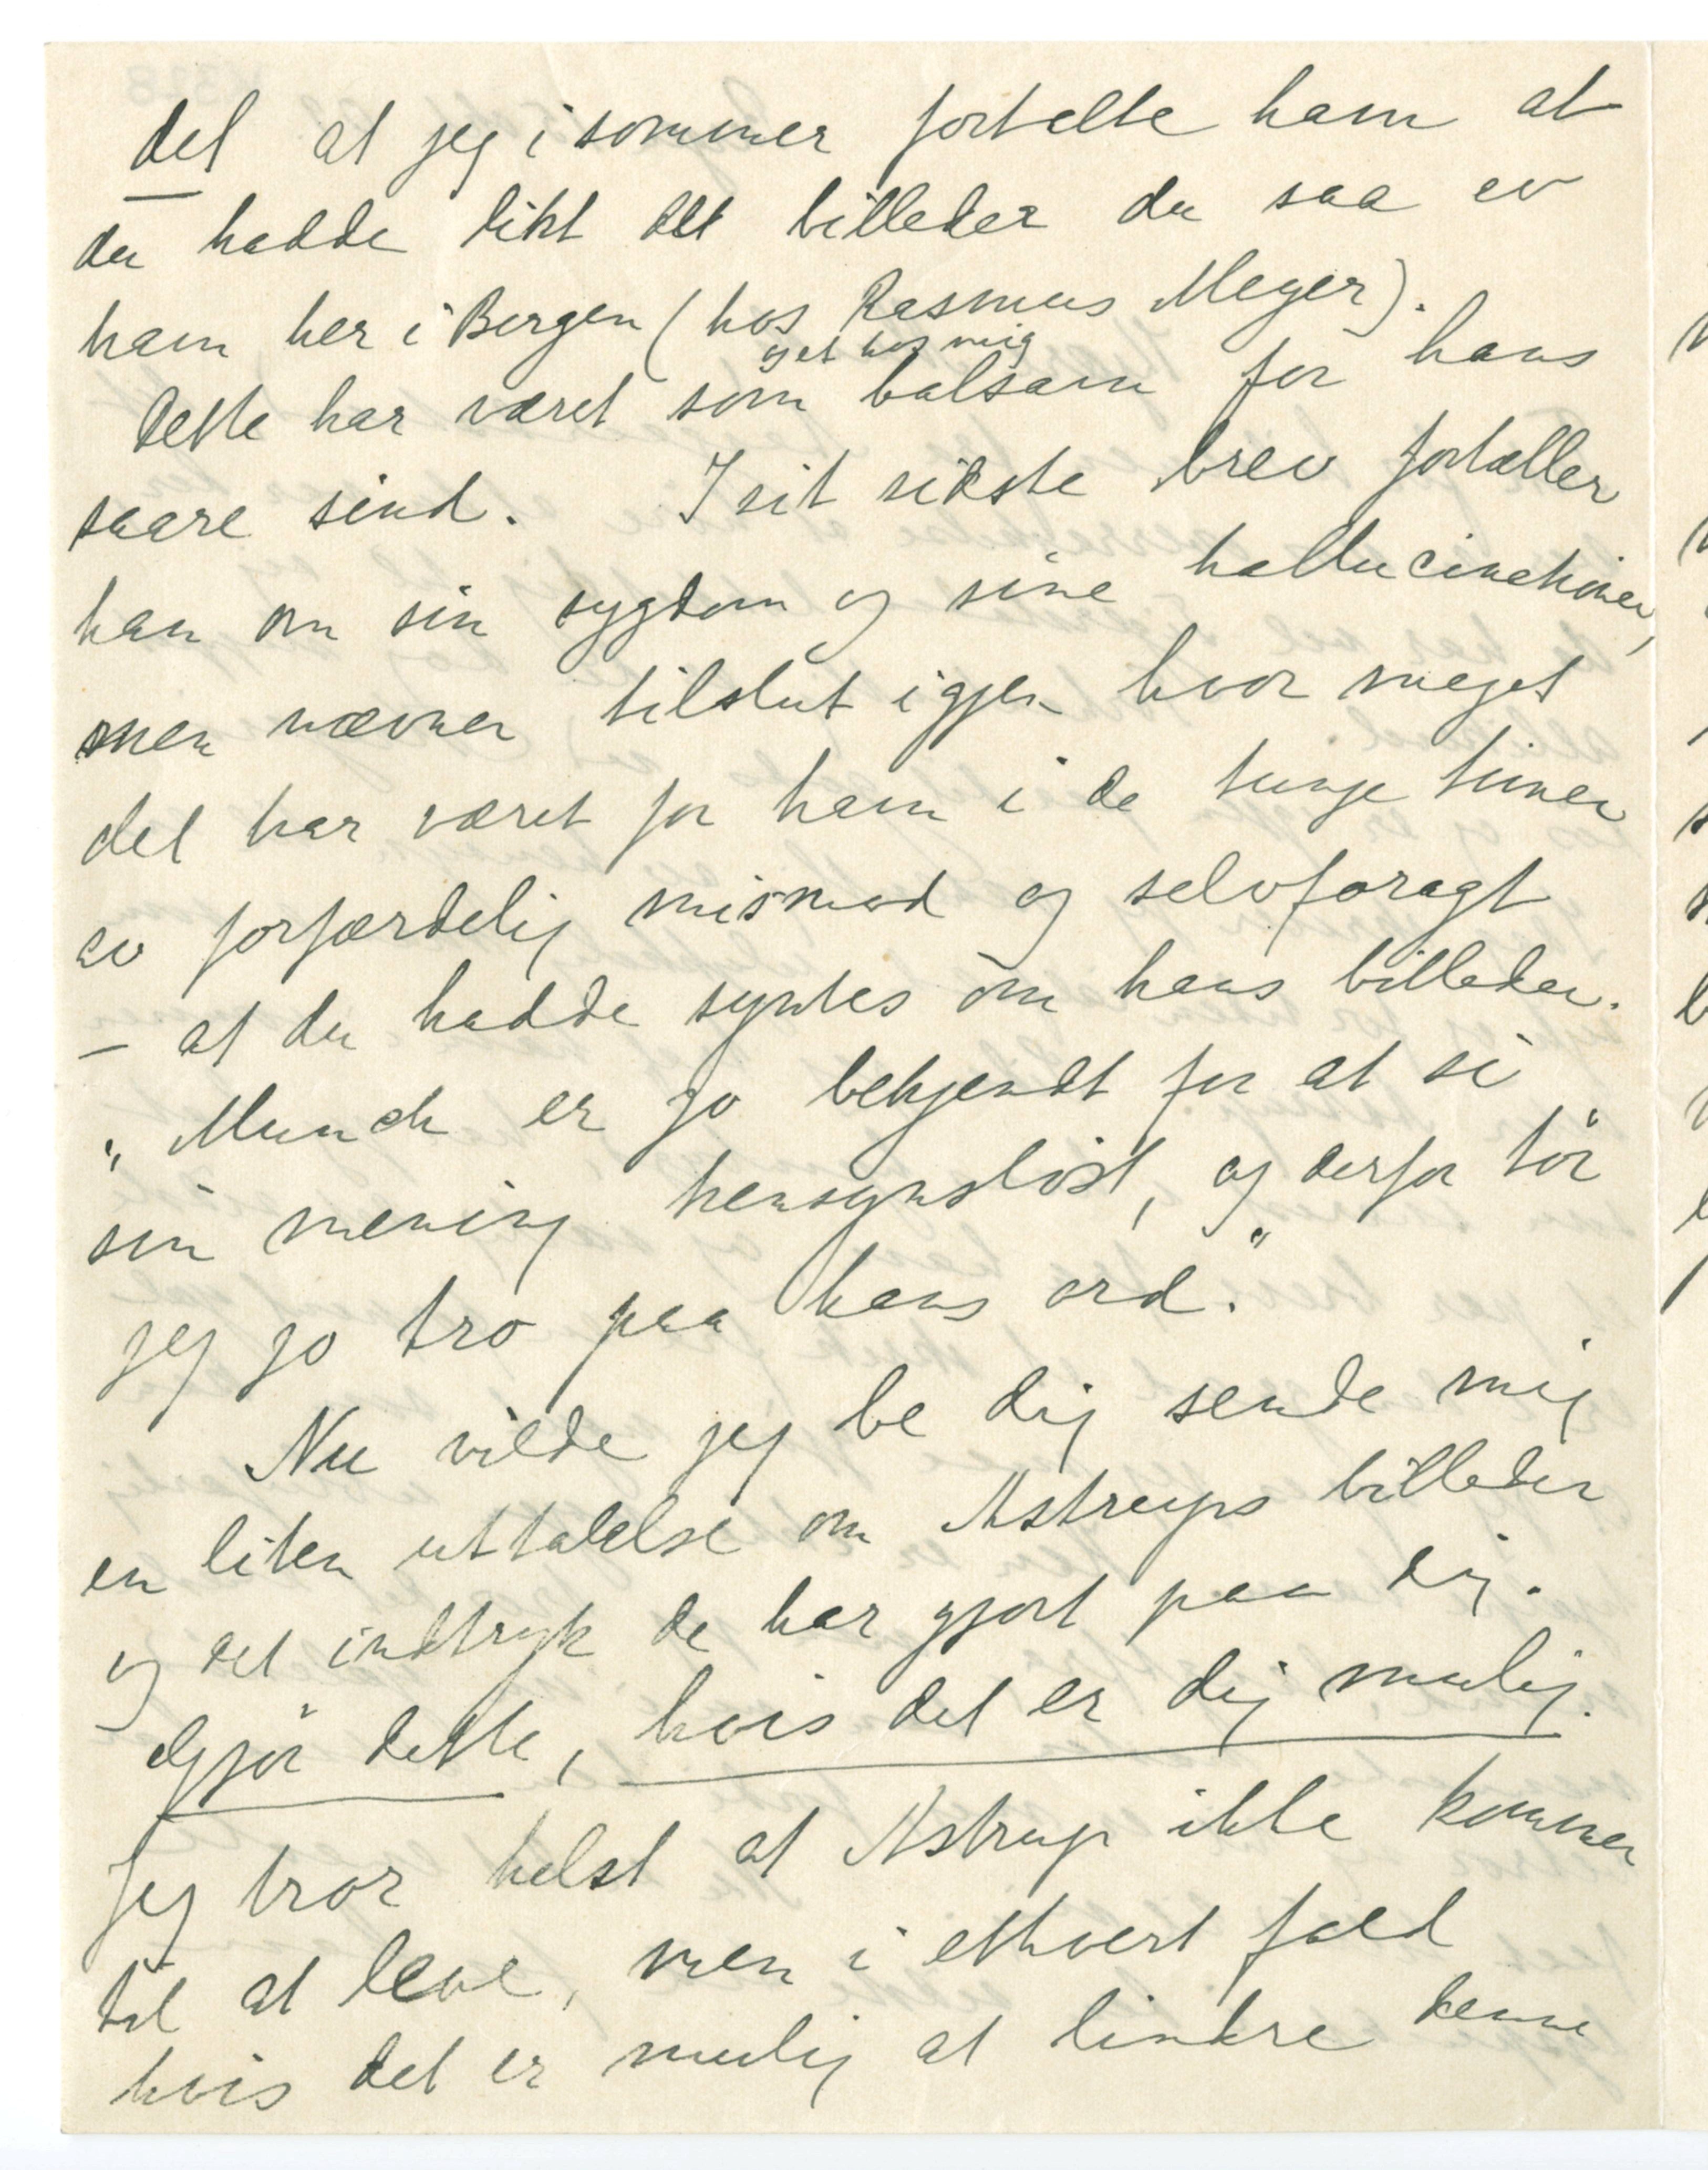 det at jeg i sommer fortelte ham at
du hadde likt de billeder du saa av
ham her i Bergen (hos Rasmus Meyer).
og et hos mig
Dette har været som balsam for hans
saare sind. I sit sidste brev fortæller
han om sin sygdom og sine hallucinationer,
men nævner tilslut igjen hvor meget
det har været for ham i de tunge timer
av forfærdelig mismod og selvforagt
– at du hadde syntes om hans billeder.
„Munch er jo bekjendt for at si
sin mening hensynsløst, og derfor tör
jeg jo tro paa hans ord.“
Nu vilde jeg be dig sende mig
en liten uttalelse om Astrups billeder
og det indtryk de har gjort paa dig.
Gjør dette, hvis det er dig mulig.
Jeg tror helst at Astrup ikke kommer
til at leve, men i ethvert fald
hvis det er mulig at lindre denne